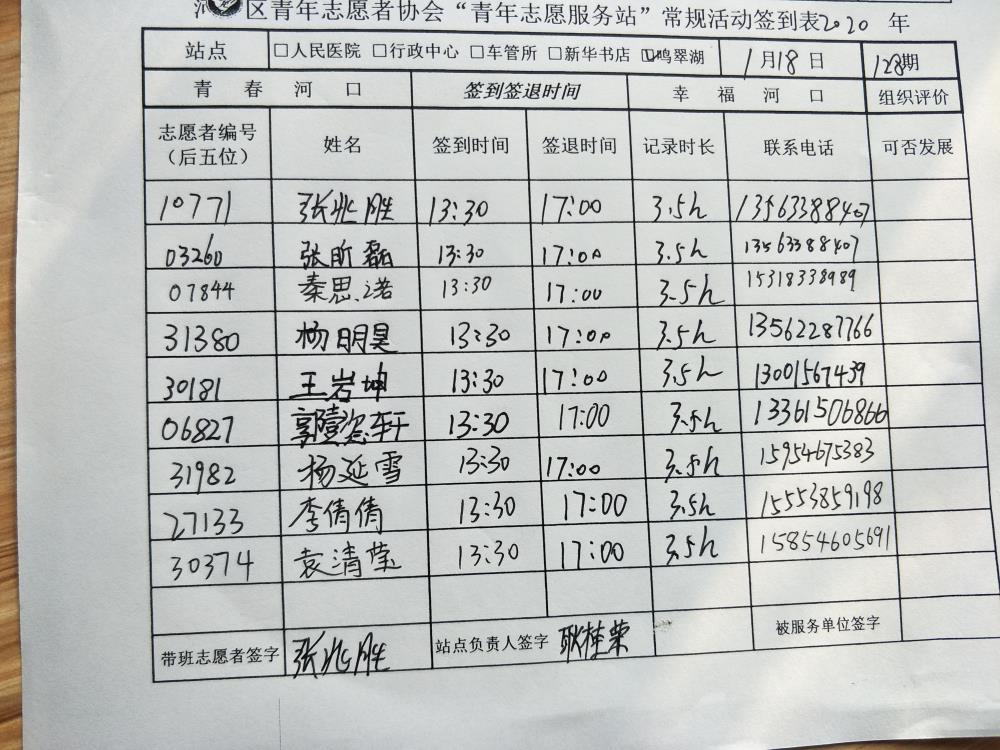 区青年志愿者协会“青年志愿服务站”常规活动签到表2020 年
站点 □人民医院 □行政中心 □车管所 □新华书店 ☑鸣翠湖 1月18日 128期
青春河口 签到签退时间 幸福河口 组织评价
志愿者编号（后五位） 姓名 签到时间 签退时间 记录时长 联系电话 可否发展
10771 张兆胜 13:30 17:00 3.5h 13563388407
03260 张昕磊 13:30 17:00 3.5h 13563388407
07844 秦思诺 13:30 17:00 3.5h 15318338989
31380 杨明昊 13:30 17:00 3.5h 13562287766
30181 王岩坤 13:30 17:00 3.5h 13001567439
06827 郭轩 13:30 17:00 3.5h 13361506866
31982 杨延雪 13:30 17:00 3.5h 15954675383
27133 李倩倩 13:30 17:00 3.5h 15553859198
30374 袁清莹 13:30 17:00 3.5h 15854605691
带班志愿者签字 张兆胜 站点负责人签字 耿桂荣 被服务单位签字